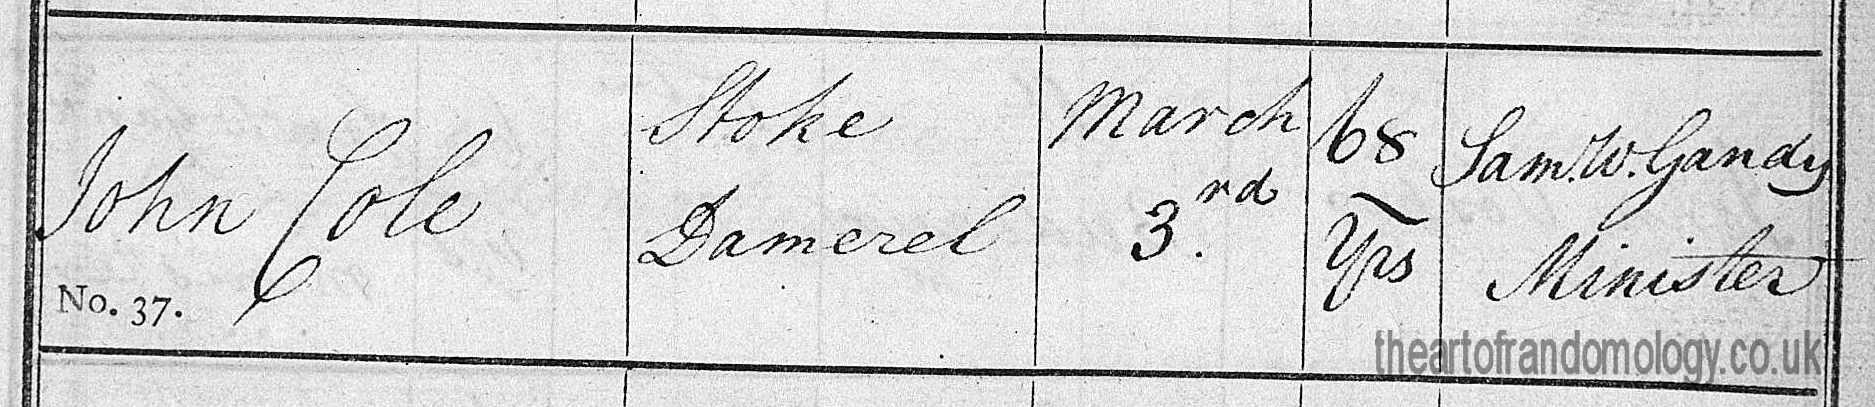 John Cole
No. 37.
Stoke
Damerel
March
3.rd
68
Yrs
Sam. W. Gandy
Minister
theartofrandomology.co.uk